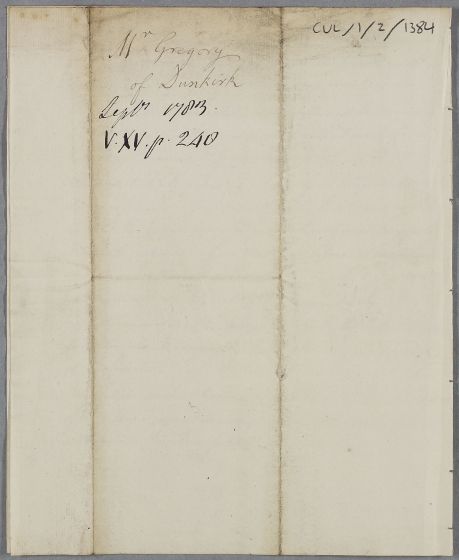 CUL/1/2/1384
Mr Gregory
of Dunkirk
Septr 1783.
V. XV. p. 240